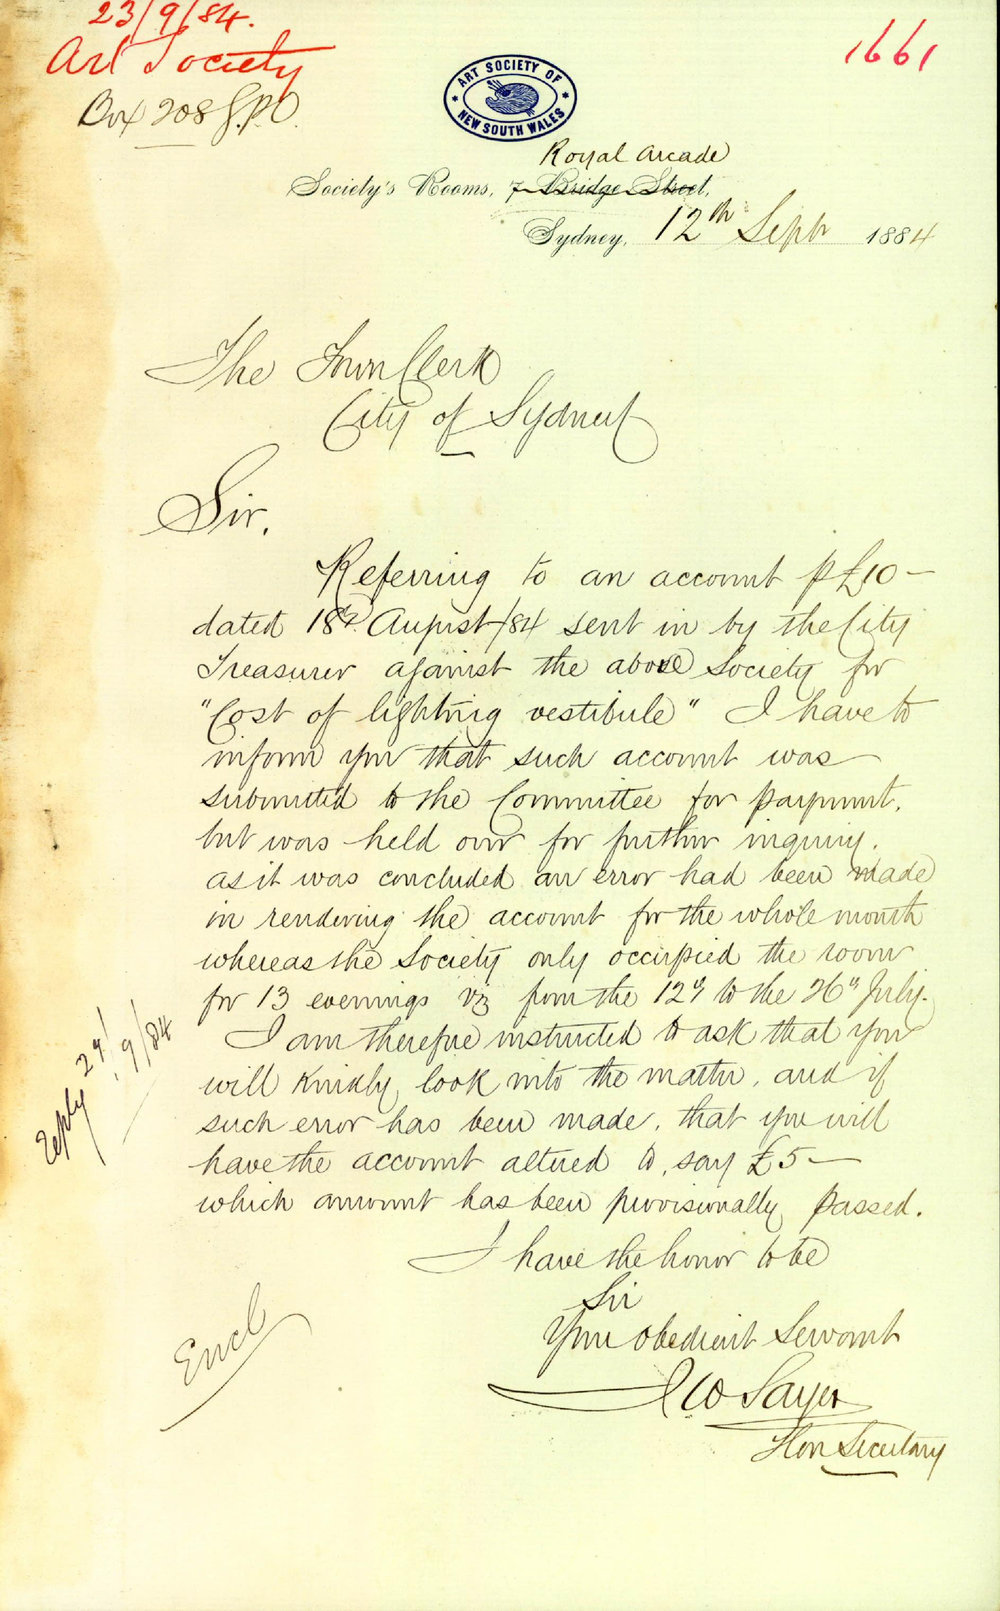 23/9/84.
Art Society
Box 208 G.P.O.
1661
ART SOCIETY OF
NEW SOUTH WALES
Royal Arcade
Society's Rooms, 7 Bridge Street,
Sydney, 12th Sept 1884
The Town Clerk
City of Sydney
Sir,
Referring to an account p £10 –
dated 18th August/84 sent in by the City
Treasurer against the above Society for
"Cost of lighting vestibule" I have to
inform you that such account was
submitted to the Committee for payment,
but was held over for further inquiry,
as it was concluded an error had been made
in rendering the account for the whole month
whereas the Society only occupied the room
for 13 evenings viz from the 12th to the 26th July.
I am therefore instructed to ask that you
will kindly look into the matter, and if
such error has been made, that you will
have the account altered to, say £5 –
which amount has been provisionally passed.
I have the honor to be
Sir
Your obedient Servant
Sayer
Hon Secretary
Reply 24/9/84
Encl